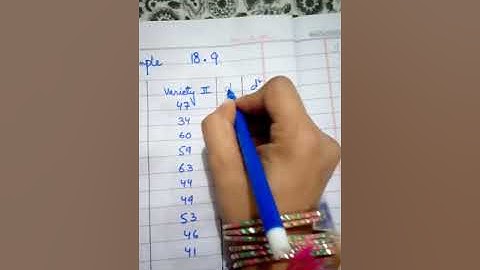 mple 18.9
Variety II d d²
47
34
60
59
63
44
49
53
46
41